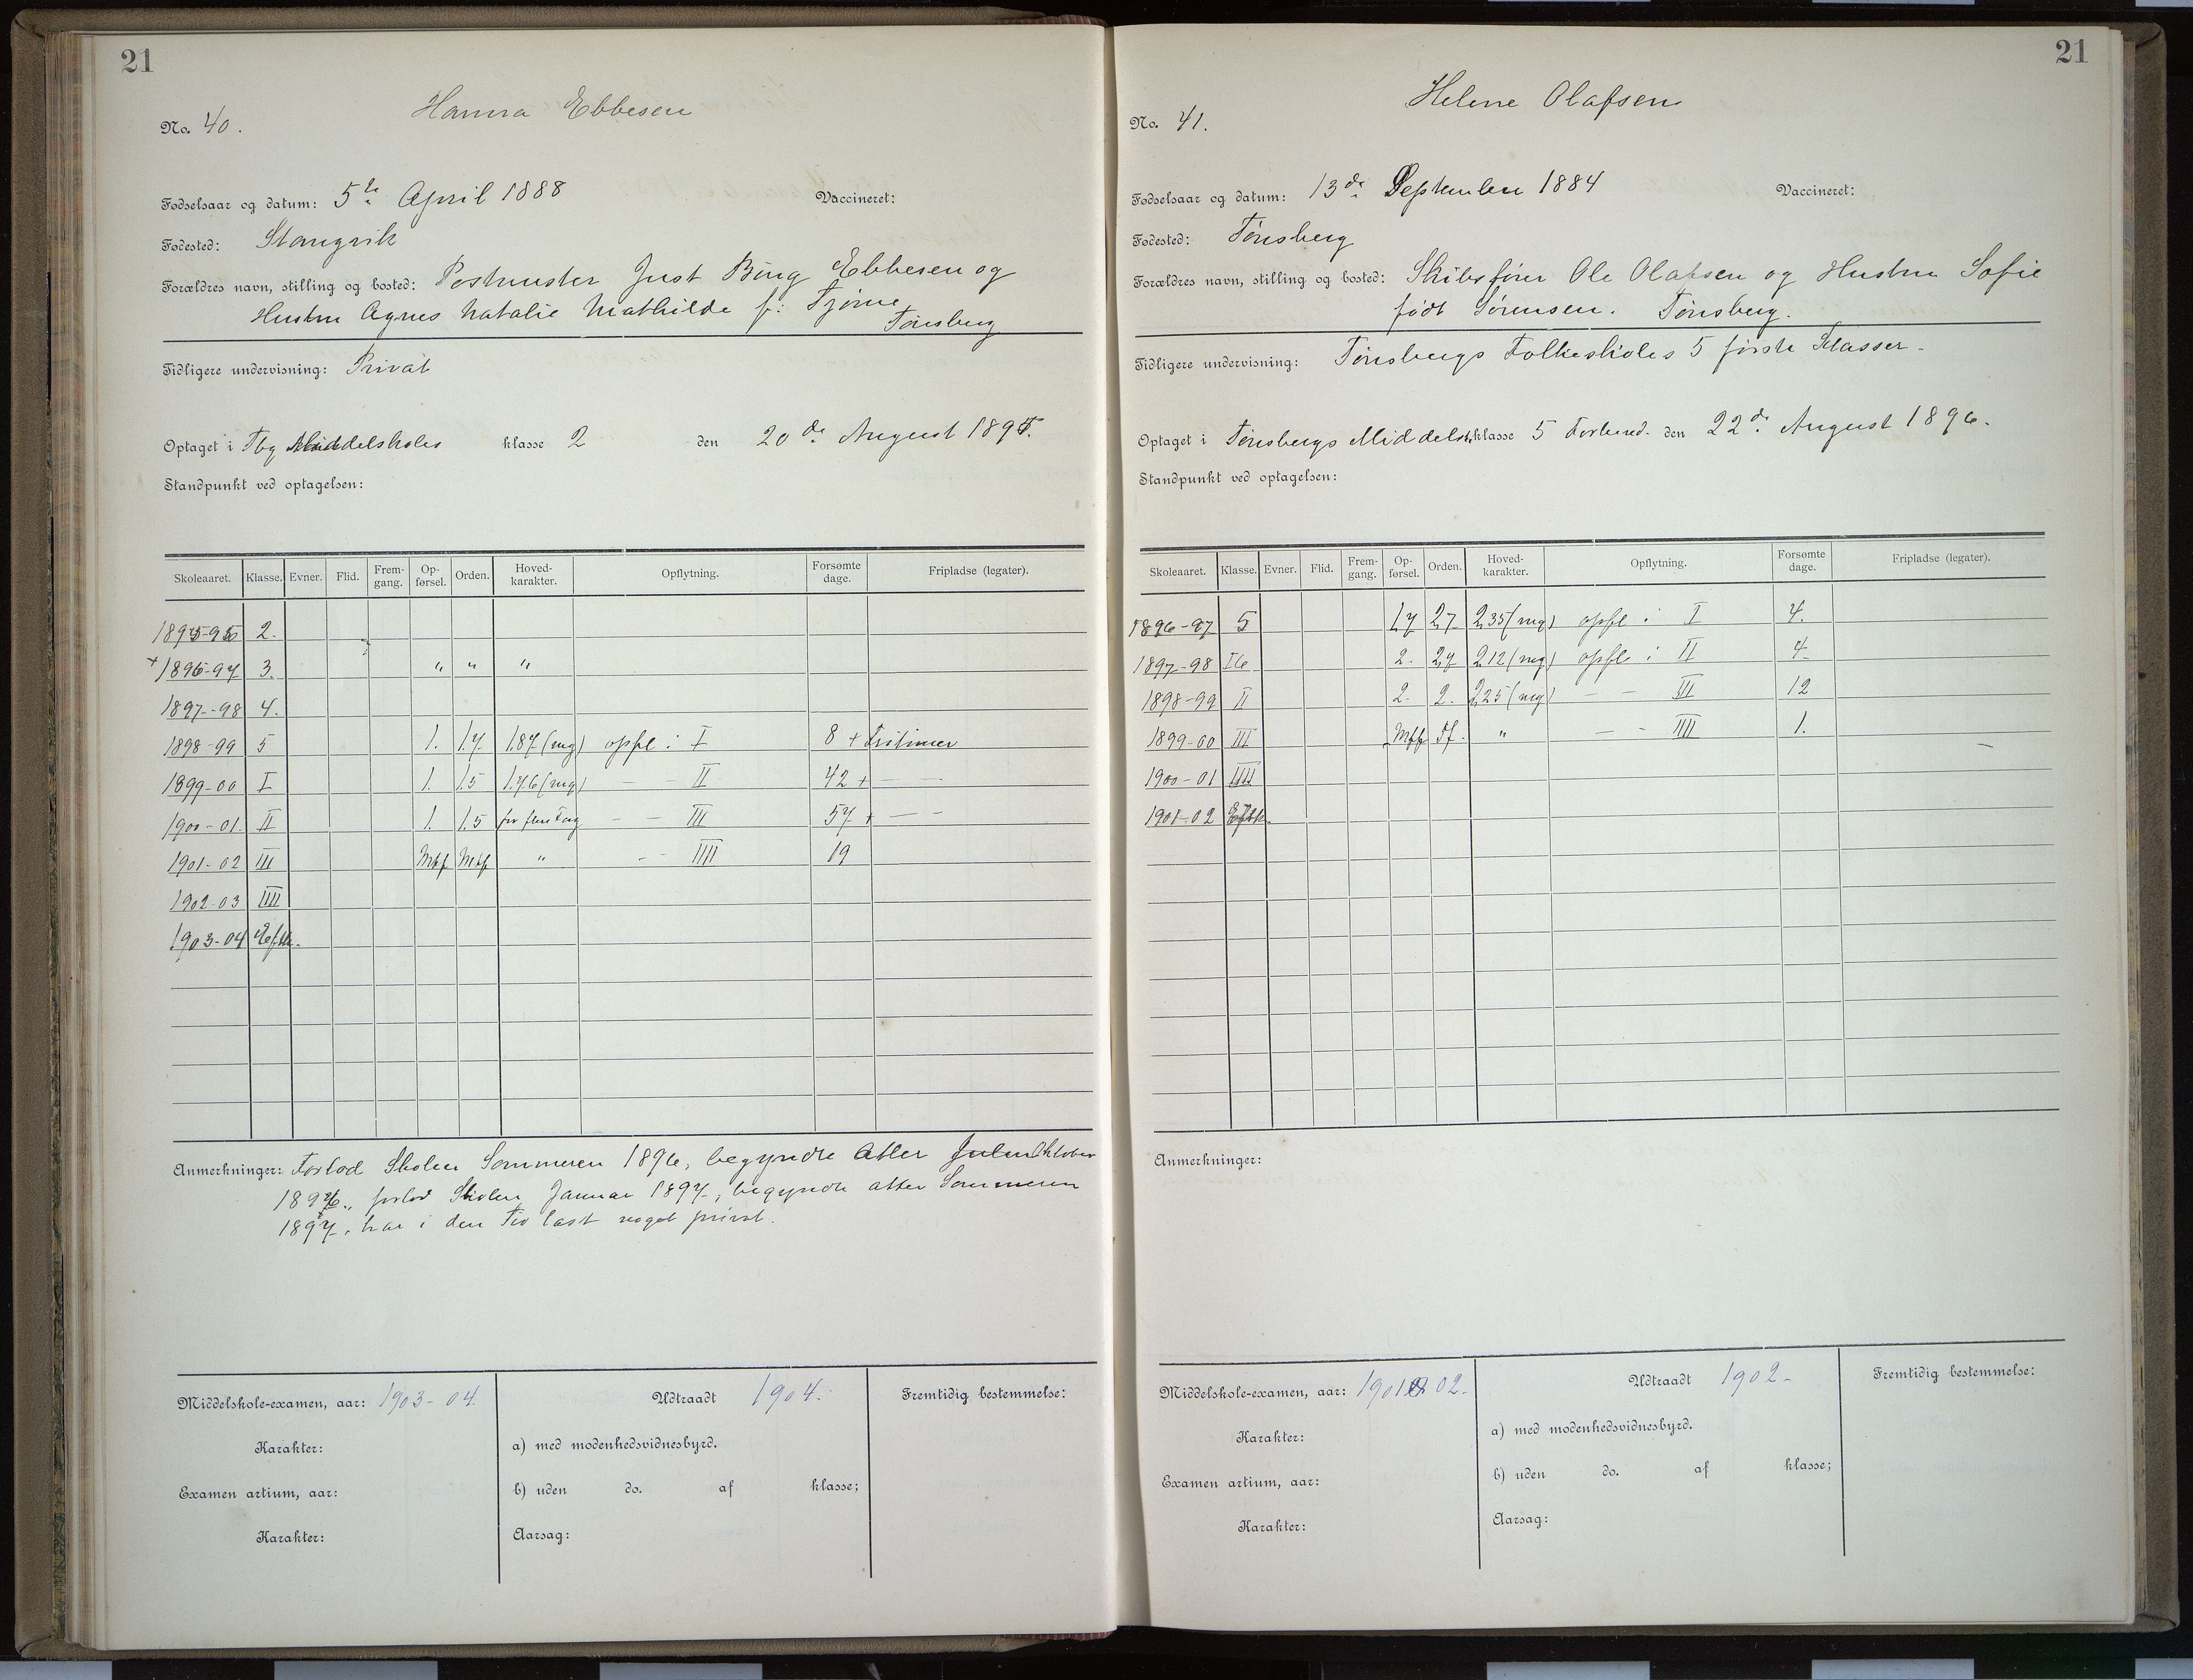 21
Hanna Ebbesen
No. 40.
Fødselsaar og datum: 5te April 1888 Vaccineret:
Fødested: Stangvik
Forældres navn, stilling og bosted: Postmester Just Bing Ebbesen og
Hustru Agnes Natalie Mathilde f: Tjöme,
Tönsberg
Tidligere undervisning: Privat
Optaget i Tbg Middelskoles klasse 2 den 20de August 1895.
Standpunkt ved optagelsen:
Skoleaaret. Klasse. Evner. Flid. Frem-gang. Op-førsel. Orden. Hoved-karakter. Opflytning. Forsømte dage. Fripladse (legater).
1895-96 2.
+ 1896-97 3. " " "
1897-98 4.
1898-99 5 1. 1.7. 1.87 (mg) opfl i I 8 + Fritimer
1899-00 I 1. 1.5 1.76 (mg) — — II 42 + — —
1900-01. II 1. 1.5 for flere Fag — — III 57 + — —
1901-02 III Mtf Mtf " - - IIII 19
1902-03 IIII
1903-04 Eftk.
Anmerkninger: Forlod Skolen Sommeren 1896, begyndte atter Julen Oktober
1896., forlod Skolen Januar 1897, begyndte atter Sommeren
1897, har i den Tid læst noget privat.
Middelskole-examen, aar: 1903-04.
Karakter:
Examen artium, aar:
Karakter:
Udtraadt 1904.
a) med modenhedsvidnesbyrd.
b) uden do. af klasse;
Aarsag:
Fremtidig bestemmelse:
21
Helene Olafsen
No. 41.
Fødselsaar og datum: 13de September 1884 Vaccineret:
Fødested: Tönsberg
Forældres navn, stilling og bosted: Skibsförer Ole Olafsen og Hustru Sofie
født Sörensen. Tönsberg.
Tidligere undervisning: Tönsbergs Folkeskoles 5 förste Klasser -
Optaget i Tönsbergs Middelsk. klasse 5 Forbered. den 22de August 1896.
Standpunkt ved optagelsen:
Skoleaaret. Klasse. Evner. Flid. Frem-gang. Op-førsel. Orden. Hoved-karakter. Opflytning. Forsømte dage. Fripladse (legater).
1896-97 5 1,7 2,7 2,35 (mg) opfl i I 4.
1897-98 Ib 2. 2,7 2,12 (mg) opfl i II 4
1898-99 II 2. 2. 2,25 (mg) — — III 12
1899-00 III Mtf Tf. " — - IIII 1.
1900-01 IIII
1901-02 Eftk.
Anmerkninger:
Middelskole-examen, aar: 1901 02.
Karakter:
Examen artium, aar:
Karakter:
Udtraadt 1902-
a) med modenhedsvidnesbyrd.
b) uden do. af klasse;
Aarsag:
Fremtidig bestemmelse: